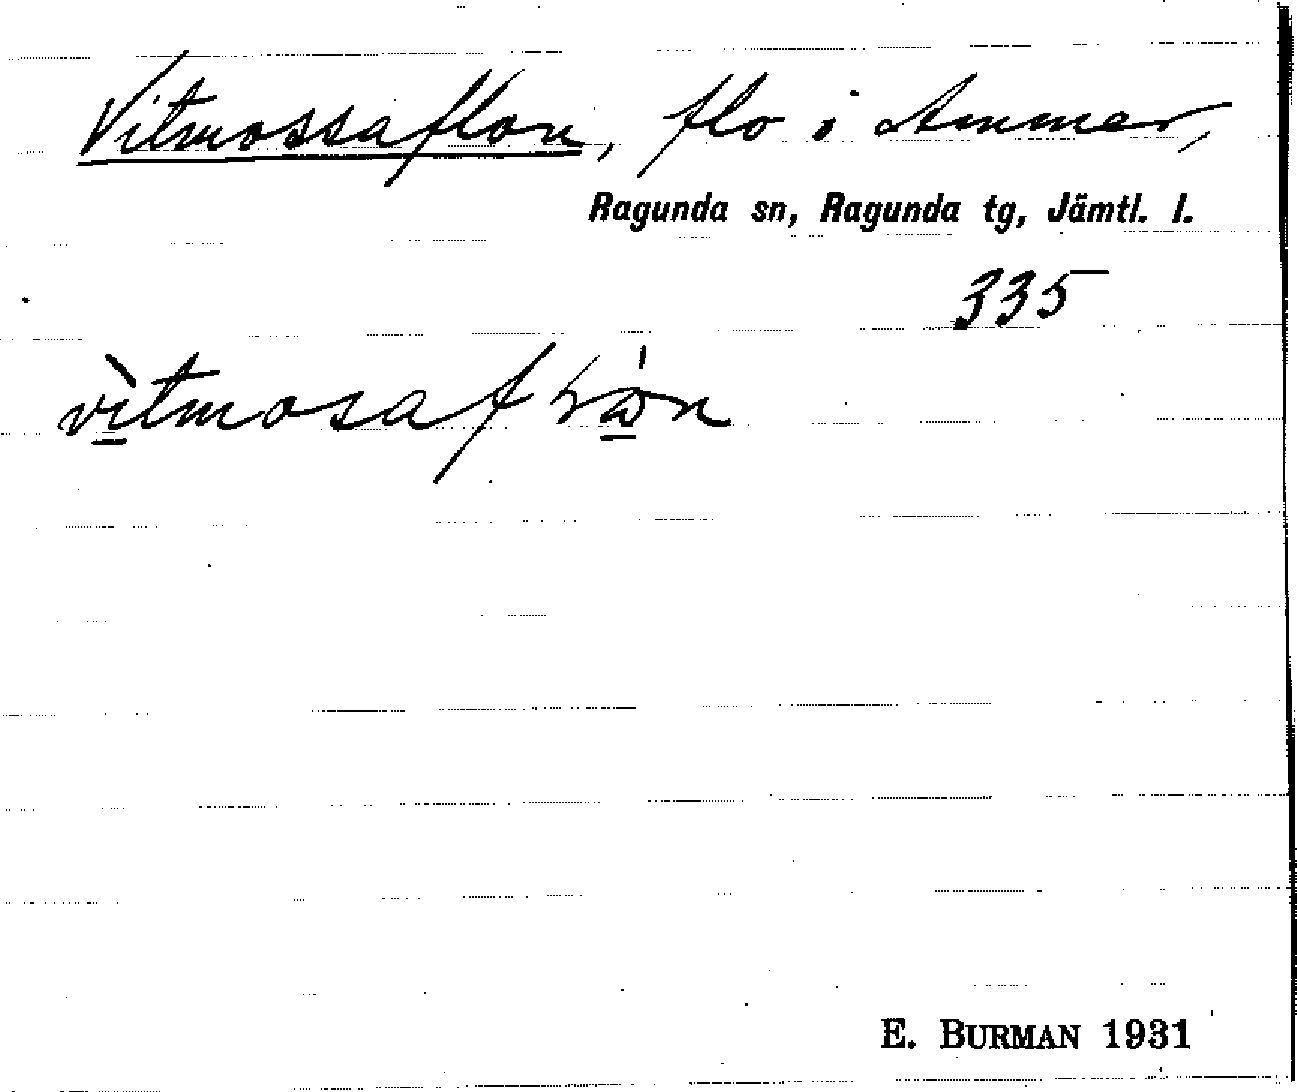 Vitmossaflon, flo i Ammer,
Ragunda sn, Ragunda tg, Jämtl. l.
335
E. BURMAN 1931